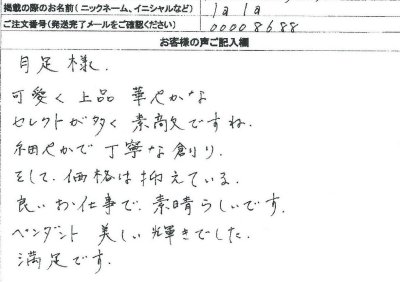 掲載の際のお名前(ニックネーム、イニシャルなど) lala
ご注文番号(発送完了メールをご確認ください) 00008688
お客様の声ご記入欄
月足様.
可愛く 上品 華やかな
セレクトが多く 素高欠ですね.
細やかで丁寧な創り.
そして、価格は抑えている.
良いお仕事で、素晴らしいです.
ペンダント 美しい輝きでした.
満足です.